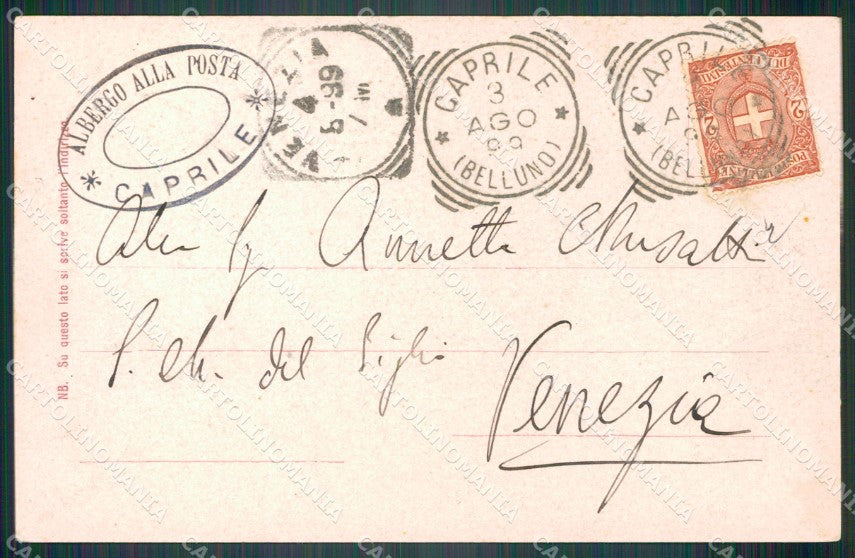 ALBERGO ALLA POSTA
CAPRILE
VENEZIA
4
8-99
7 M
CAPRILE
3
AGO
99
(BELLUNO)
CAPRILE
AGO
(BELLUNO)
POSTALE ITALIANE
2
2
NB. Su questo lato si scrive soltanto l'indirizzo
Alla Sig Annetta Musatti
S. M. del Giglio
Venezia
CARTOLINOMANIA